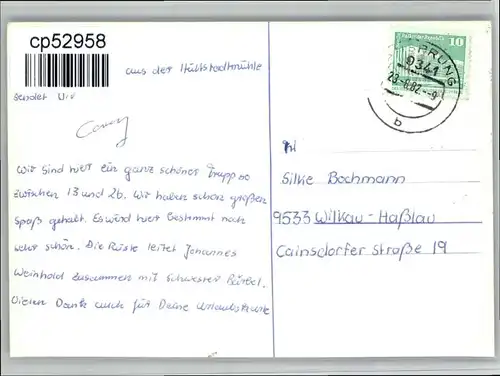 cp52958
aus der Hüttstadtmühle
sendet Dir
Conny
Wir sind hier ein ganz schöner Trupp so
zwischen 13 und 26. Wir haben schon großen
Spaß gehabt. Es wird hier bestimmt noch
sehr schön. Die Rüste leitet Johannes
Weinhold zusammen mit Schwester Bärbel.
Vielen Dank auch für Deine Urlaubskarte
10
SPRUNG
9341
23.-8.82.-9
b
Silke Bochmann
9533 Wilkau-Haßlau
Cainsdorfer Straße 19